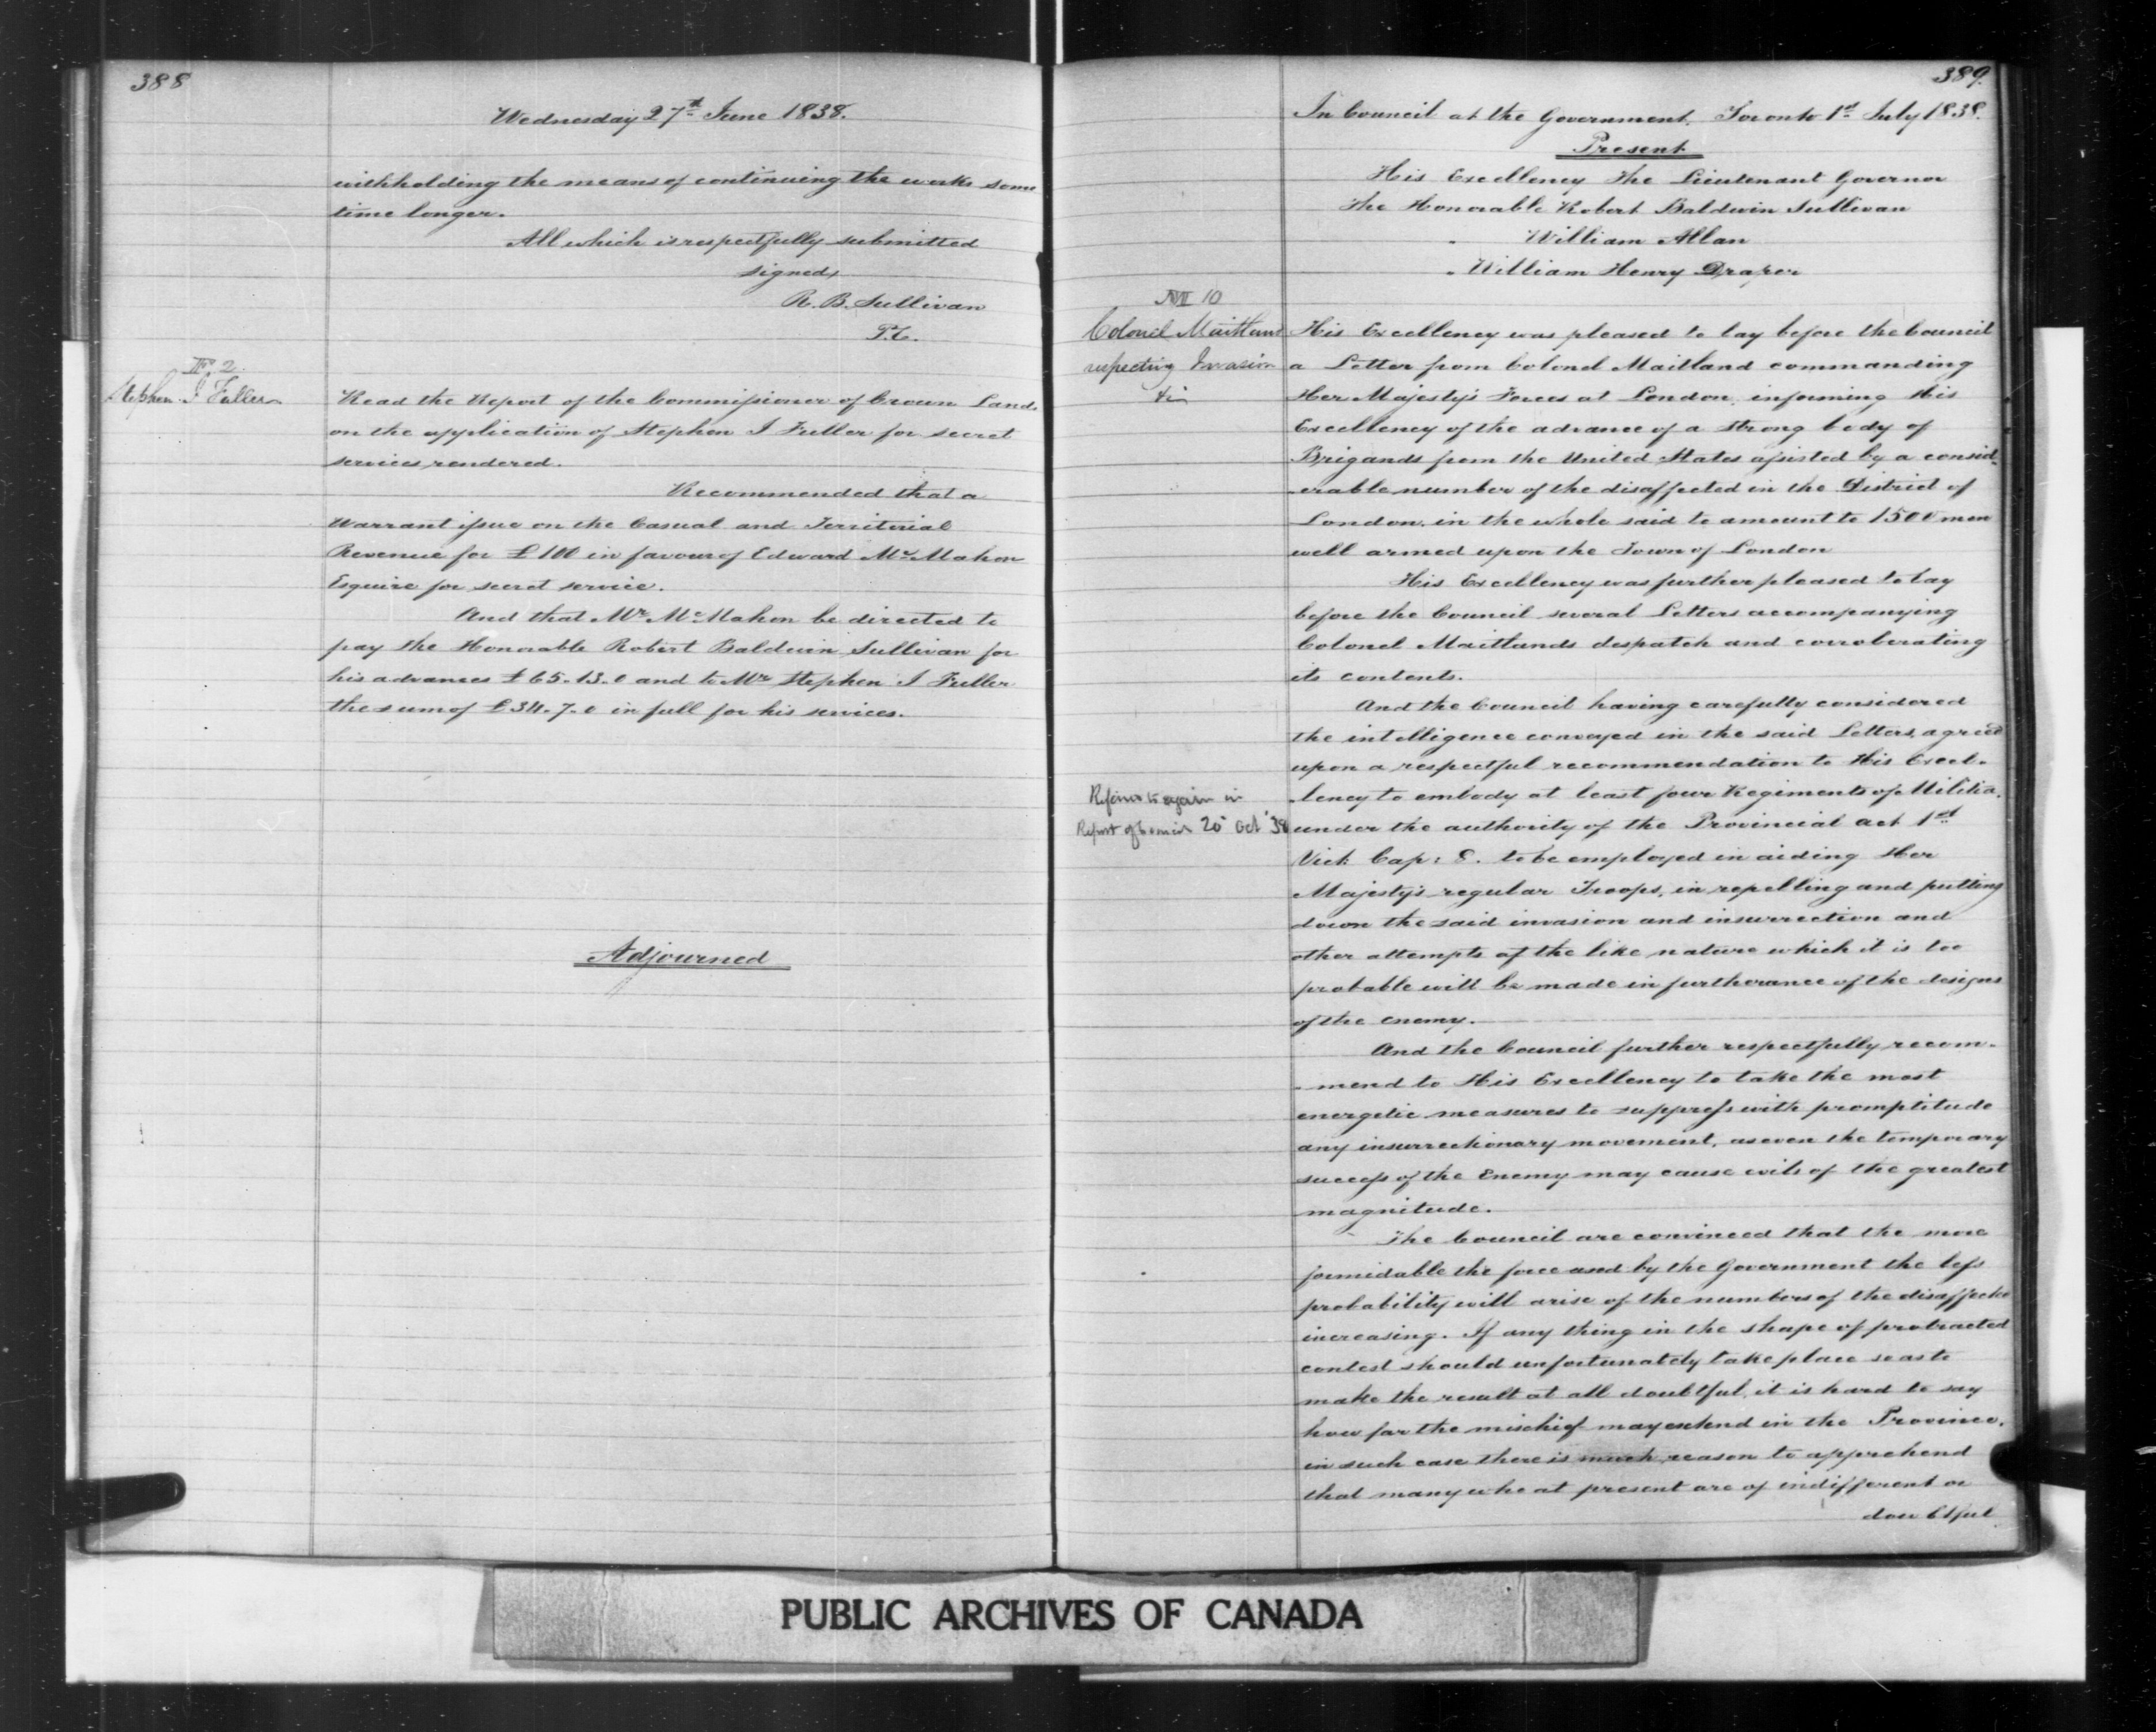 388
Wednesday 27th June 1838.
withholding the means of continuing the works some
time longer.
All which is respectfully submitted
signed,
R. B. Sullivan
P.C.
No. 2
Stephen I Fuller
Read the Report of the Commissioner of Crown Lands
on the application of Stephen I Fuller for secret
services rendered.
Recommended that a
Warrant issue on the Casual and Territorial
Revenue for £100 in favour of Edward McMahon
Esquire for secret service.
And that Mr McMahon be directed to
pay the Honorable Robert Baldwin Sullivan for
his advances £65.13.0 and to Mr Stephen I Fuller
the sum of £34.7.0 in full for his services.
Adjourned
389.
In Council at the Government, Toronto 1st July 1838.
Present
His Excellency The Lieutenant Governor
The Honorable Robert Baldwin Sullivan
" William Allan
" William Henry Draper
10
Colonel Maitland
respecting Invasion
&c
His Excellency was pleased to lay before the Council
a Letter from Colonel Maitland commanding
Her Majesty's Forces at London, informing His
Excellency of the advance of a strong body of
Brigands from the United States assisted by a consid-
-erable number of the disaffected in the District of
London, in the whole said to amount to 1500 men
well armed upon the Town of London
His Excellency was further pleased to lay
before the Council several Letters accompanying
Colonel Maitlands despatch and corroberating
its contents.
And the Council having carefully considered
the intelligence conveyed in the said Letters, agreed
upon a respectful recommendation to His Excel-
-lency to embody at least four Regiments of Militia,
Referred to again in
Report of Council 20 Oct '38
under the authority of the Provincial act 1st
Vict: Cap: 8. to be employed in aiding Her
Majesty's regular Troops, in repelling and putting
down the said invasion and insurrection and
other attempts of the like nature which it is too
probable will be made in furtherance of the designs
of the enemy.
And the Council further respectfully recom-
-mend to His Excellency to take the most
energetic measures to suppress with promptitude
any insurrectionary movement, as even the temporary
success of the Enemy may cause evils of the greatest
magnitude.
The Council are convinced that the more
formidable the force used by the Government the less
probability will arise of the numbers of the disaffected
increasing. If any thing in the shape of protracted
contest should unfortunately take place so as to
make the result at all doubtful, it is hard to say
how far the mischief may extend in the Province,
in such case there is much reason to apprehend
that many who at present are of indifferent or
doubtful
PUBLIC ARCHIVES OF CANADA